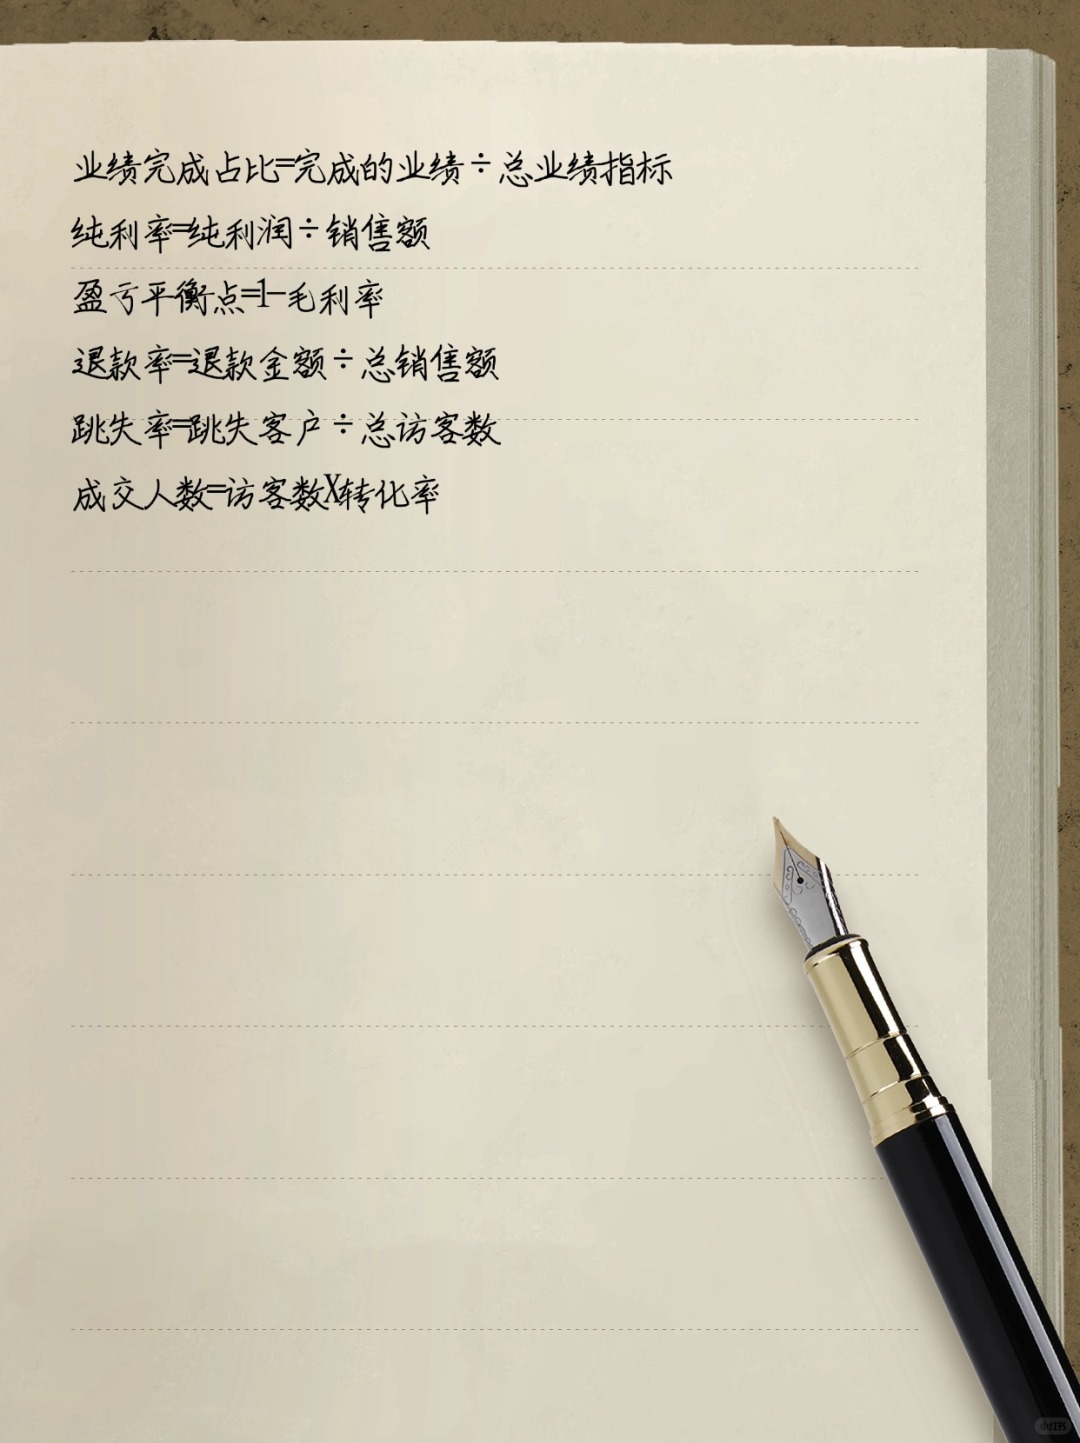 业绩完成占比=完成的业绩÷总业绩指标
纯利率=纯利润÷销售额
盈亏平衡点=1-毛利率
退款率=退款金额÷总销售额
跳失率=跳失客户÷总访客数
成交人数=访客数X转化率
小红书